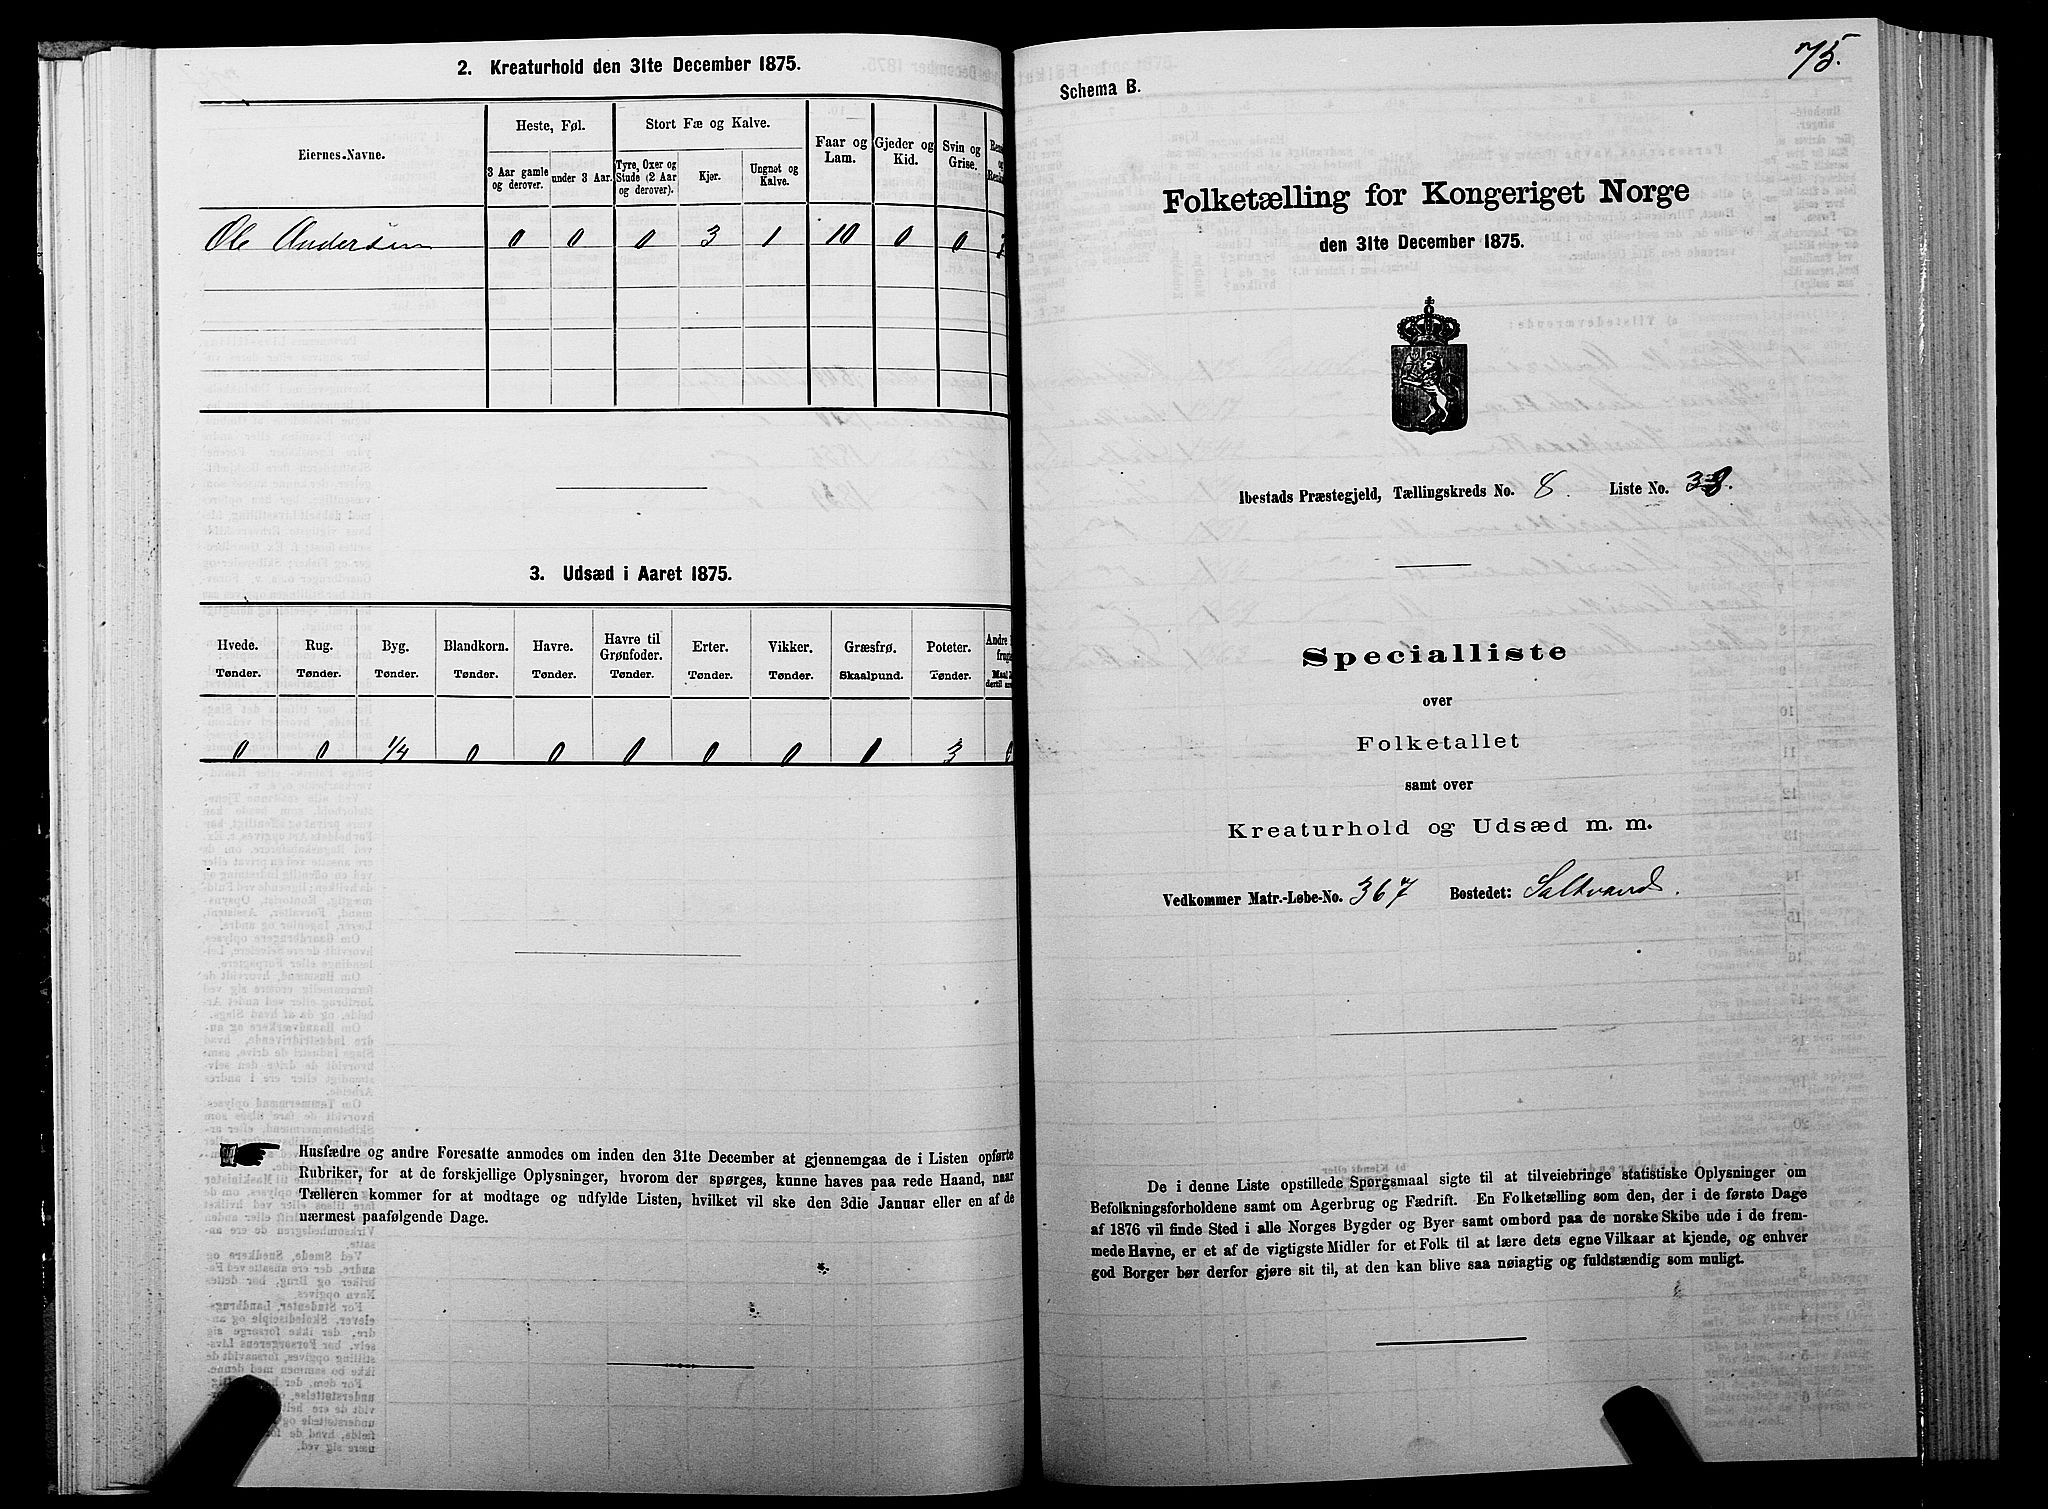 2. Kreaturhold den 31te December 1875.
Eiernes-Navne.
Heste, Føl.
Stort Fæ og Kalve.
Faar og Lam.
Gjeder og Kid.
Svin og Grise.
3 Aar gamle og derover.
under 3 Aar.
Tyre, Oxer og Stude (2 Aar og derover).
Kjør.
Ungnøt og Kalve.
Ole Andersen 0 0 0 3 1 10 0 0
3. Udsæd i Aaret 1875.
Hvede. Rug. Byg. Blandkorn. Havre. Havre til Grønfoder. Erter. Vikker. Græsfrø. Poteter. Andre
Tønder. Tønder. Tønder. Tønder. Tønder. Tønder. Tønder. Tønder. Skaalpund. Tønder.
0 0 1/4 0 0 0 0 0 0 3 0
Husfædre og andre Foresatte anmodes om inden den 31te December at gjennemgaa de i Listen opførte
Rubriker, for at de forskjellige Oplysninger, hvorom der spørges, kunne haves paa rede Haand, naar
Tælleren kommer for at modtage og udfylde Listen, hvilket vil ske den 3die Januar eller en af de
nærmest paafølgende Dage.
75.
Schema B.
Folketælling for Kongeriget Norge
den 31te December 1875.
Ibestads Præstegjeld, Tællingskreds No. 8. Liste No.
Specialliste
over
Folketallet
samt over
Kreaturhold og Udsæd m. m.
Vedkommer Matr.-Løbe-No. 367 Bostedet: Saltvand.
De i denne Liste opstillede Spørgsmaal sigte til at tilveiebringe statistiske Oplysninger om
Befolkningsforholdene samt om Agerbrug og Fædrift. En Folketælling som den, der i de første Dage
af 1876 vil finde Sted i alle Norges Bygder og Byer samt ombord paa de norske Skibe ude i de frem-
mede Havne, er et af de vigtigste Midler for et Folk til at lære dets egne Vilkaar at kjende, og enhver
god Borger bør derfor gjøre sit til, at den kan blive saa nøiagtig og fuldstændig som muligt.